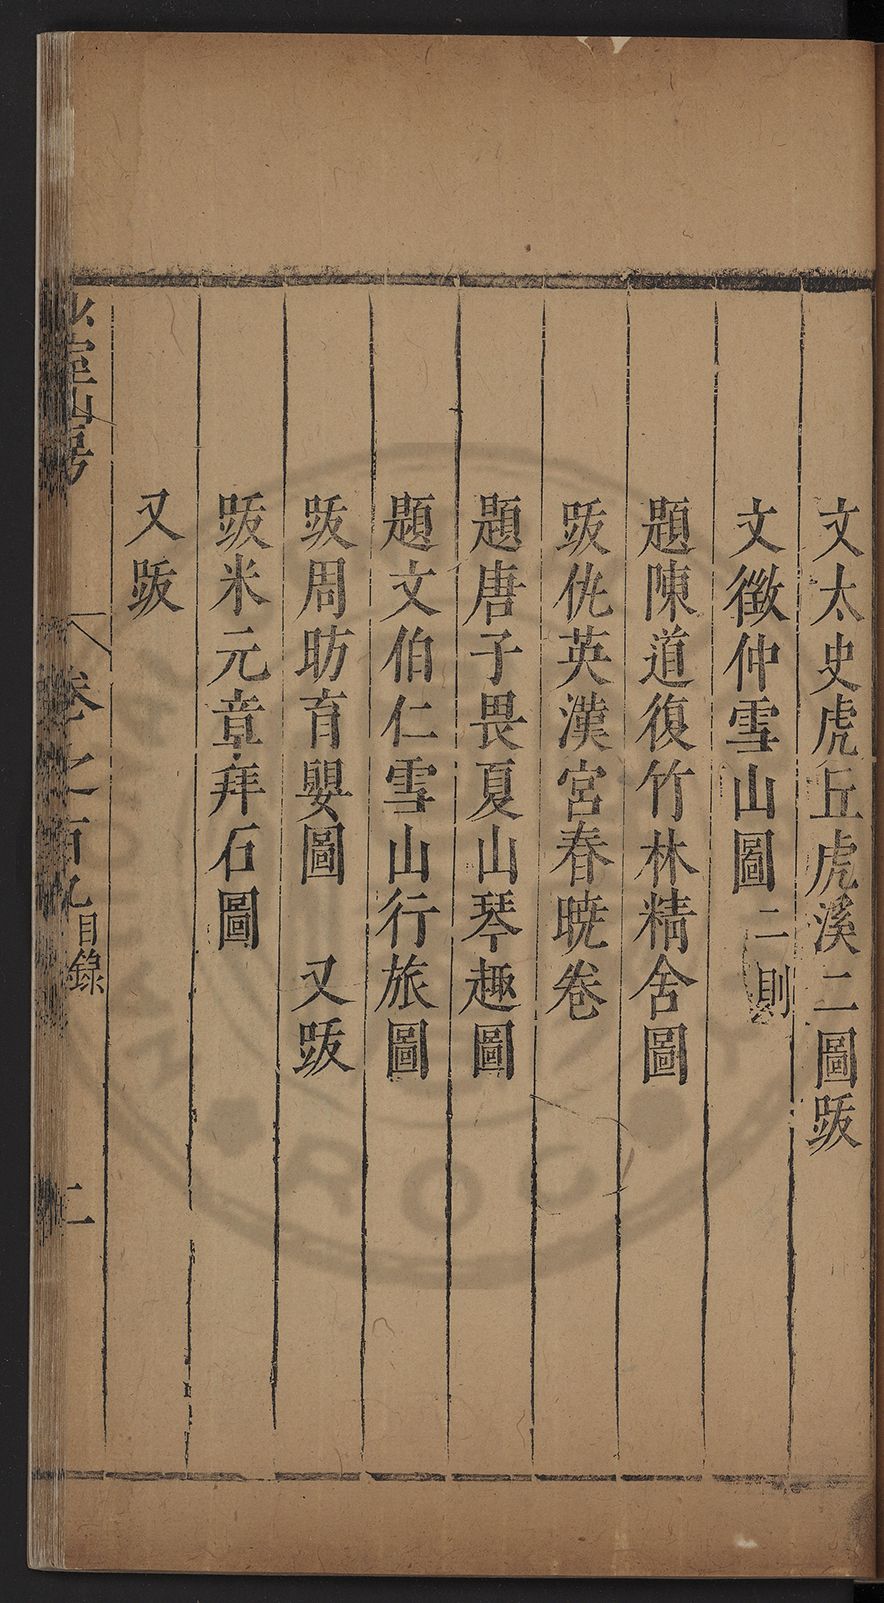 文太史虎丘虎溪二圖跋
文徵仲雪山圖二則
題陳道復竹林精舍圖
跋仇英漢宮春曉卷
題唐子畏夏山琴趣圖
題文伯仁雪山行旅圖
跋周昉育嬰圖　又跋
跋米元章拜石圖
又跋
少室山房
卷之一百九目錄
二